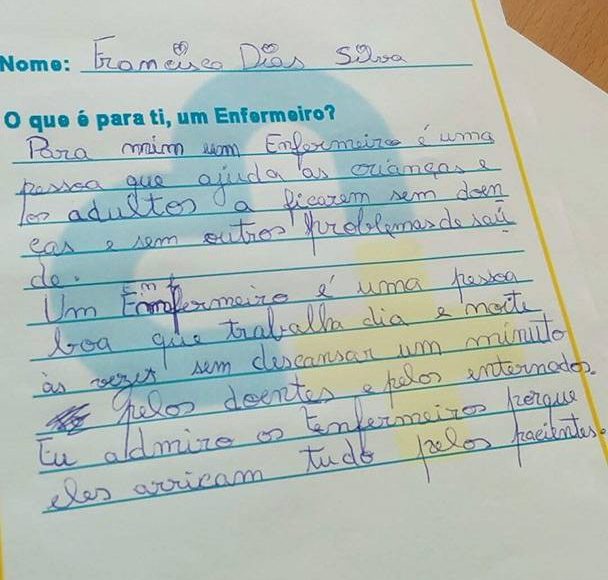 Nome: Francisca Dias Silva
O que é para ti, um Enfermeiro?
Para mim um Enfermeiro é uma
pessoa que ajuda as crianças e
os adultos a ficarem sem doen
ças e sem outros problemas de saú
de.
Um Enfermeiro é uma pessoa
boa que trabalha dia e noite
às vezes sem descansar um minuto
pelos doentes e pelos internados.
Eu admiro os Enfermeiros porque
eles arricam tudo pelos pacientes.